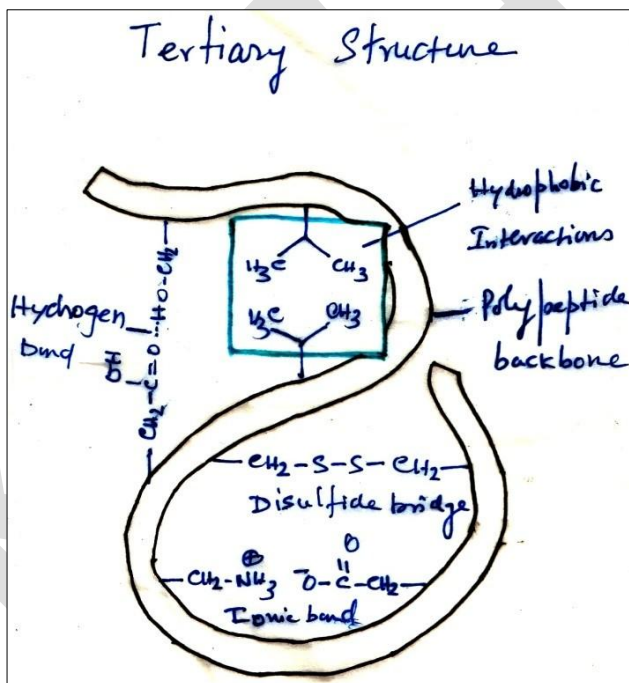 Tertiary Structure
Hydrophobic
Interactions
H₃C CH₃
H₃C CH₃
Polypeptide
backbone
Hydrogen
bond
CH₂-C=O···HO-CH₂
OH
-CH₂-S-S-CH₂-
Disulfide bridge
O
-CH₂-NH₃⊕ ⁻O-C-CH₂-
Ionic bond